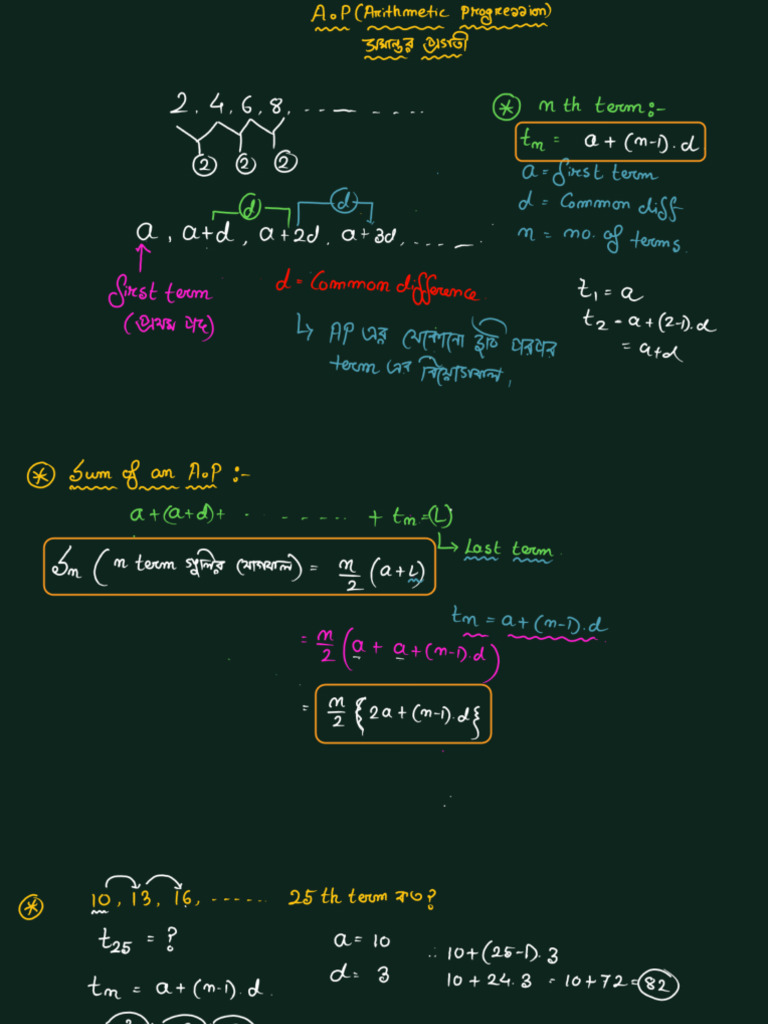 A.P (Arithmetic Progression)
সমান্তর প্রগতী
2, 4, 6, 8, ...........
2 2 2
* n th term:-
tn = a + (n-1). d
a = first term
d = Common diff
n = no. of terms.
d d
a, a+d, a+2d, a+3d, .......
first term
(প্রথম পদ)
d = Common difference.
↳ AP এর যেকোনো দুটি পরপর
term এর বিয়োগফল,
t1 = a
t2 = a + (2-1). d
= a+d
* Sum of an A.P :-
a + (a+d) + ........... + tn = (L)
↳ Last term.
Sn ( n term গুলির যোগফল) = n/2 (a + L)
tn = a + (n-1). d
= n/2 (a + a + (n-1). d)
= n/2 {2a + (n-1). d}
* 10, 13, 16, ....... 25 th term কত?
t25 = ?
a = 10
d = 3
∴ 10 + (25-1). 3
10 + 24. 3 = 10 + 72 = 82
tn = a + (n-1). d.